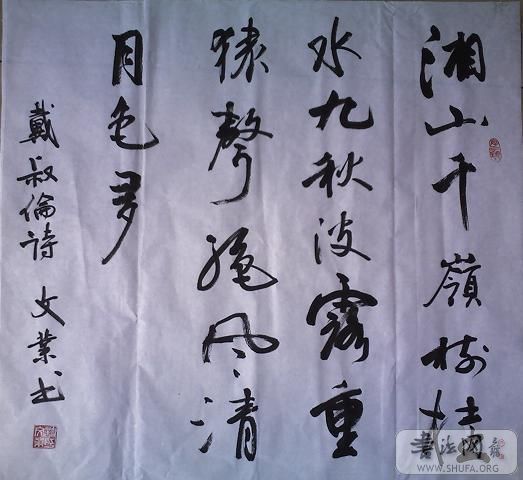 湘山千嶺樹桂
水九秋波露重
猿聲絕风清
月色多
戴叔倫詩 文業书
書法网
WWW.SHUFA.ORG